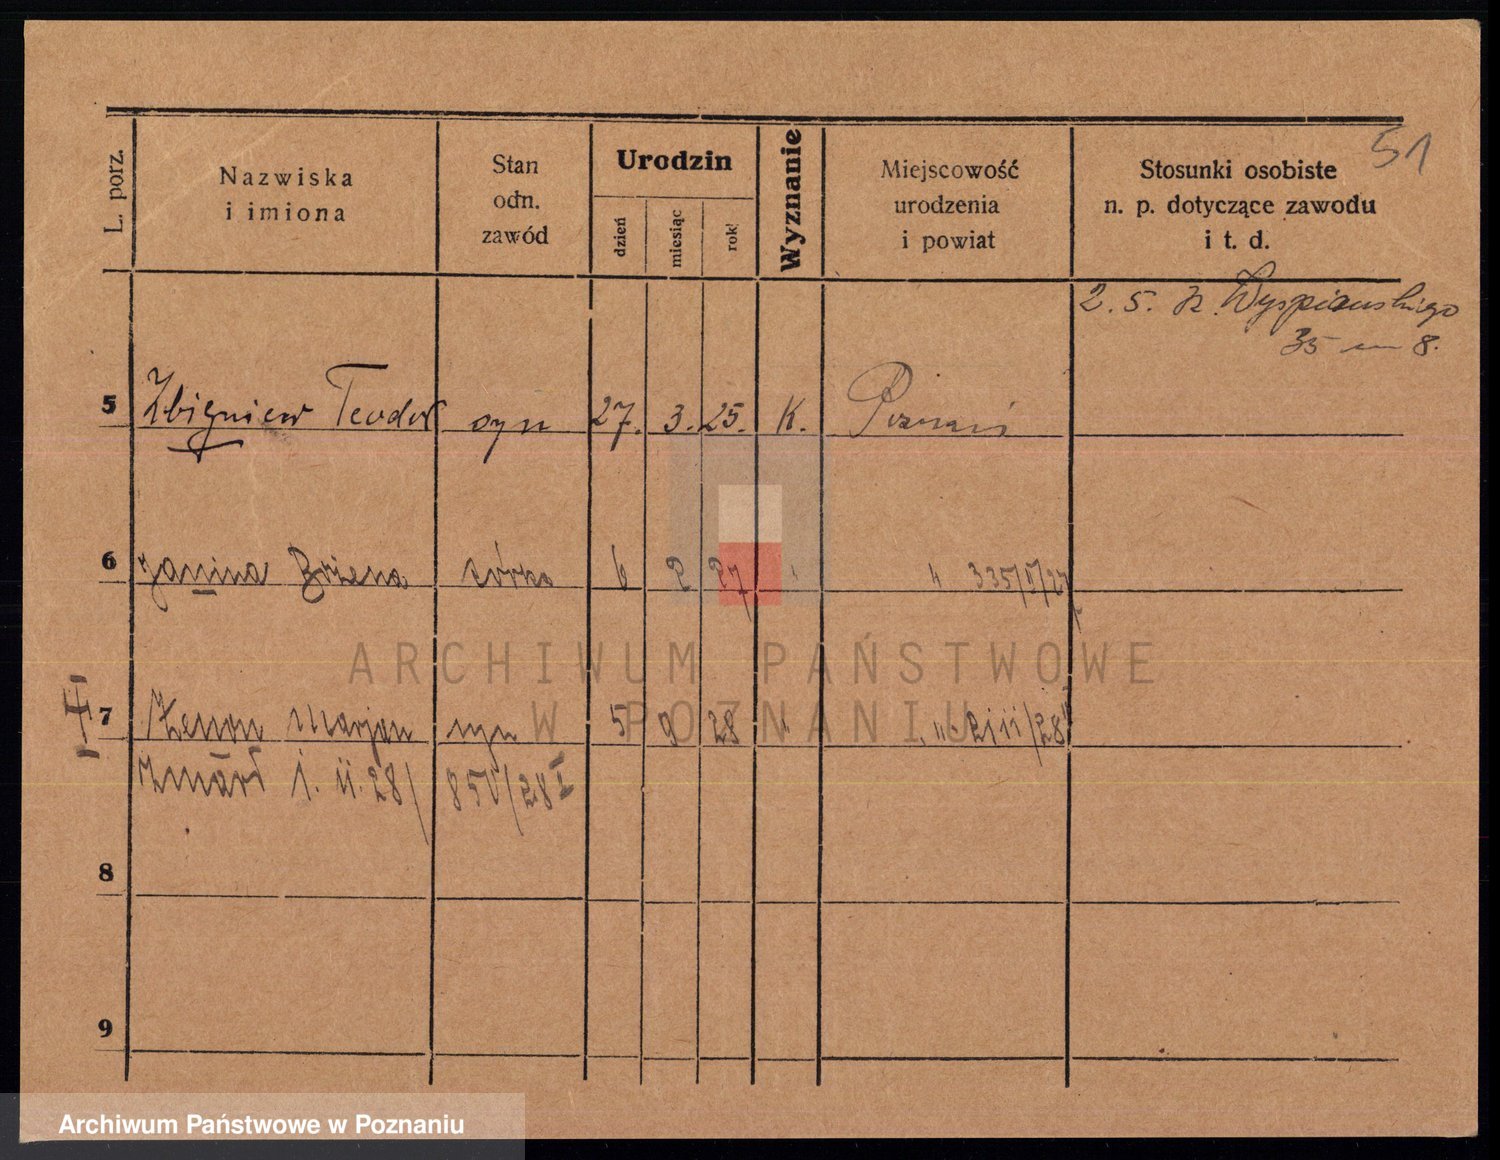 51
L. porz.
Nazwiska
i imiona
Stan
odn.
zawód
Urodzin
dzień
miesiąc
rok
Wyznanie
Miejscowość
urodzenia
i powiat
Stosunki osobiste
n. p. dotyczące zawodu
i t. d.
2. 5. Wyspiańskiego
35 m 8.
5 Zbigniew Teodor syn 27. 3. 25. K. Poznań
6 Janina Bożena córka 6 2 27 " 335/II/27
7 Zenon Marjan syn 5 9 28 " "
zmarł 1. 11. 28/ 850/28 I
8
9
ARCHIWUM PAŃSTWOWE
W POZNANIU
Archiwum Państwowe w Poznaniu